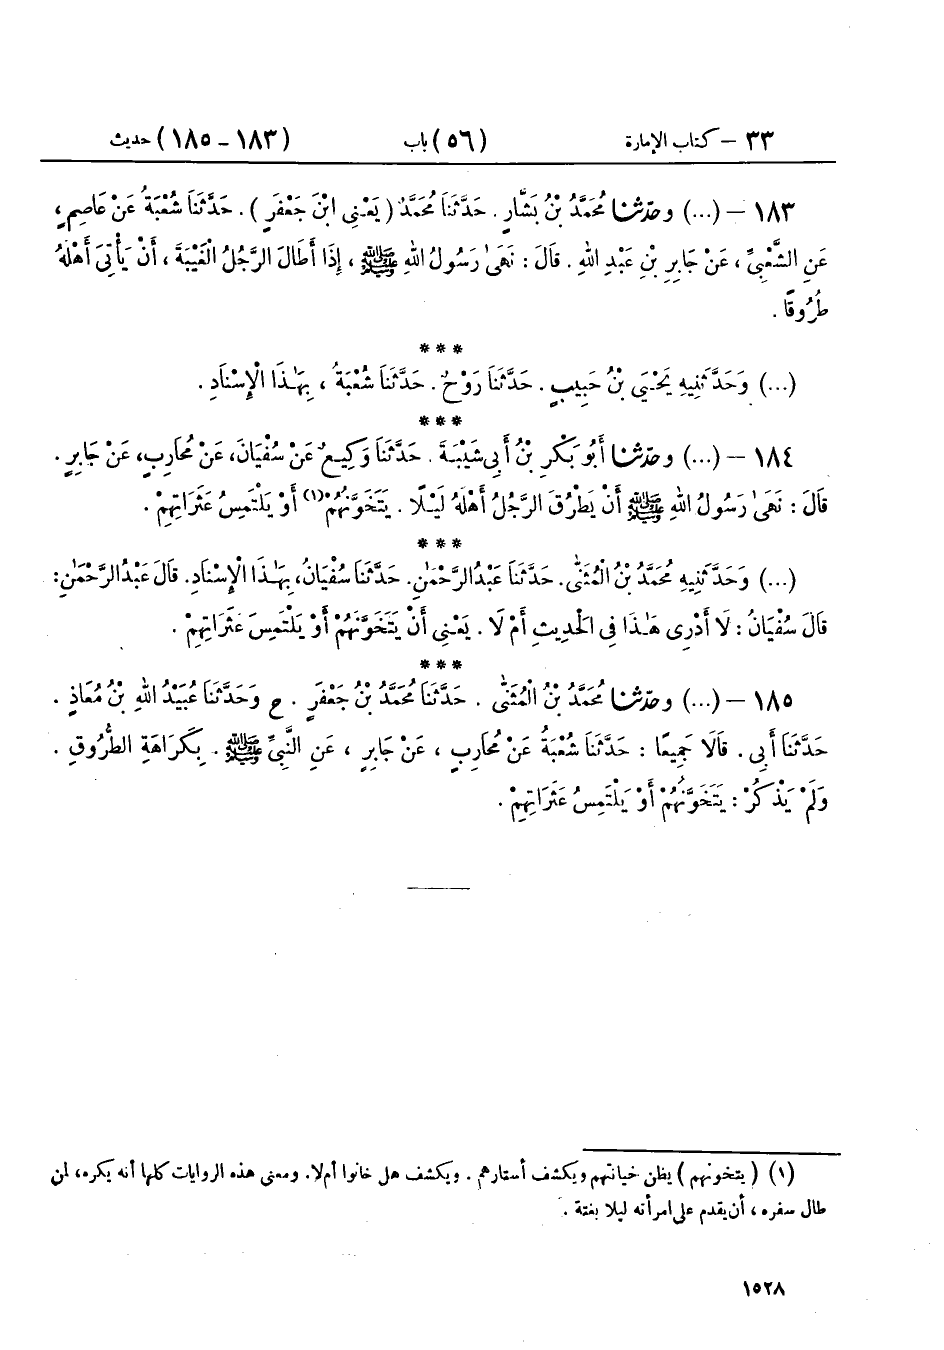 ٣٣ – كتاب الإمارة (٥٦) باب (١٨٣ – ١٨٥) حديث
١٨٣ – (...) وحدّثنا مُحَمَّدُ بْنُ بَشَّارٍ . حَدَّثَنَا مُحَمَّدٌ ( يَعْنِي ابْنَ جَعْفَرٍ ) . حَدَّثَنَا شُعْبَةُ عَنْ عَاصِمٍ،
عَنِ الشَّعْبِيِّ ، عَنْ جَابِرِ بْنِ عَبْدِ اللهِ . قَالَ : نَهَىٰ رَسُولُ اللهِ ﷺ ، إِذَا أَطَالَ الرَّجُلُ الْغَيْبَةَ ، أَنْ يَأْتِيَ أَهْلَهُ
طُرُوقًا .
***
(...) وَحَدَّثَنِيهِ يَحْيَى بْنُ حَبِيبٍ . حَدَّثَنَا رَوْحٌ . حَدَّثَنَا شُعْبَةُ ، بِهَـٰذَا الْإِسْنَادِ .
***
١٨٤ – (...) وحدّثنا أَبُو بَكْرِ بْنُ أَبِي شَيْبَةَ . حَدَّثَنَا وَكِيعٌ عَنْ سُفْيَانَ، عَنْ مُحَارِبٍ، عَنْ جَابِرٍ .
قَالَ : نَهَىٰ رَسُولُ اللهِ ﷺ أَنْ يَطْرُقَ الرَّجُلُ أَهْلَهُ لَيْـلًا . يَتَخَوَّنُهُمْ(١) أَوْ يَلْتَمِسُ عَثَرَاتِهِمْ .
***
(...) وَحَدَّثَنِيهِ مُحَمَّدُ بْنُ الْمُثَنَّىٰ. حَدَّثَنَا عَبْدُ الرَّحْمَـٰنِ. حَدَّثَنَا سُفْيَانُ، بِهَـٰذَا الْإِسْنَادِ. قَالَ عَبْدُ الرَّحْمَـٰنِ:
قَالَ سُفْيَانُ : لَا أَدْرِي هَـٰذَا فِي الْحَدِيثِ أَمْ لَا . يَعْنِي أَنْ يَتَخَوَّنَهُمْ أَوْ يَلْتَمِسَ عَثَرَاتِهِمْ .
***
١٨٥ – (...) وحدّثنا مُحَمَّدُ بْنُ الْمُثَنَّىٰ . حَدَّثَنَا مُحَمَّدُ بْنُ جَعْفَرٍ . ح وَحَدَّثَنَا عُبَيْدُ اللهِ بْنُ مُعَاذٍ .
حَدَّثَنَا أَبِي . قَالَا جَمِيعًا : حَدَّثَنَا شُعْبَةُ عَنْ مُحَارِبٍ ، عَنْ جَابِرٍ ، عَنِ النَّبِيِّ ﷺ . بِكَرَاهَةِ الطُّرُوقِ .
وَلَمْ يَذْكُرْ : يَتَخَوَّنُهُمْ أَوْ يَلْتَمِسُ عَثَرَاتِهِمْ .
(١) ( يتخونهم ) يظن خيانتهم ويكشف أستارهم . ويكشف هل خانوا أم لا. ومعنى هذه الروايات كلها أنه يكره، لمن
طال سفره ، أن يقدم على امرأته ليلا بغتة .
١٥٢٨